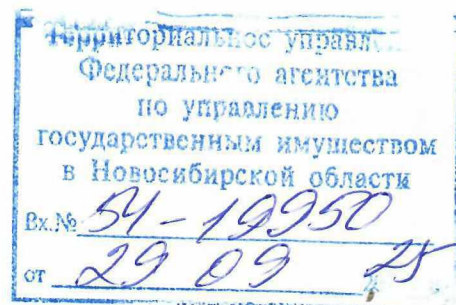 Территориальное управление
Федерального агентства
по управлению
государственным имуществом
в Новосибирской области
Вх.№ 54-19950
от 29 09 25